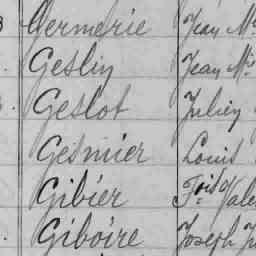 Germerie Jean M
Geslin Jean M
Geslot Julien
Gesmier Louis
Gibier Fois Vale
Giboire Joseph